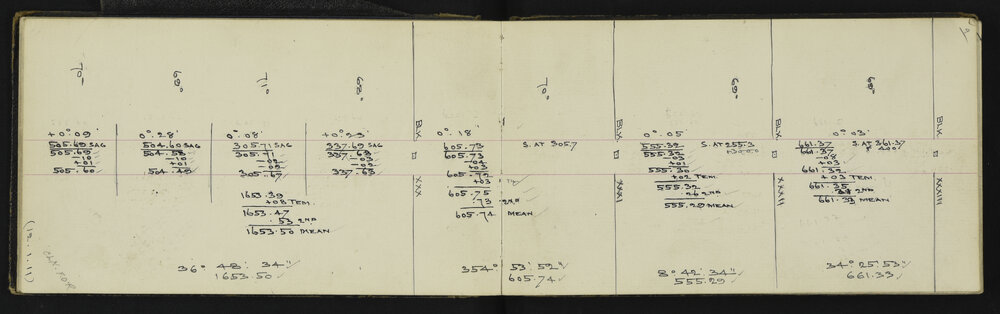 70°
69°
71°
68°
70°
69°
69°
+0°.09' 0°.28' 0°.08' +0°.23' BLK 0°.18' BLK 0°.05 BLK 0°.03'
505.69 SAG 504.60 SAG 305.71 SAG 337.69 SAG 605.73 S. AT 305.7 555.32 S. AT 255.3 661.37 S. AT 361.37
505.69 504.58 305.71 337.68 605.73 555.32 661.37
-10 -10 -02 -03 -04 -03 -08
+01 +01 -02 -02 +03 +01 +03
505.60 504.49 305.67 337.63 605.72 555.30 661.32
XXX XXXI XXXII XXXIII
+03 +02 TEM. +03 TEM.
605.75 555.32 661.35
1653.39 .73 2ND 2ND 2ND
+08 TEM. 605.74 MEAN 555.29 MEAN 661.33 MEAN
1653.47
.53 2ND
1653.50 MEAN
36° 48' 34" 354° 53' 52" 8° 42' 34" 34° 25' 53"
1653.50 605.74 555.29 661.33
(12.1.11)